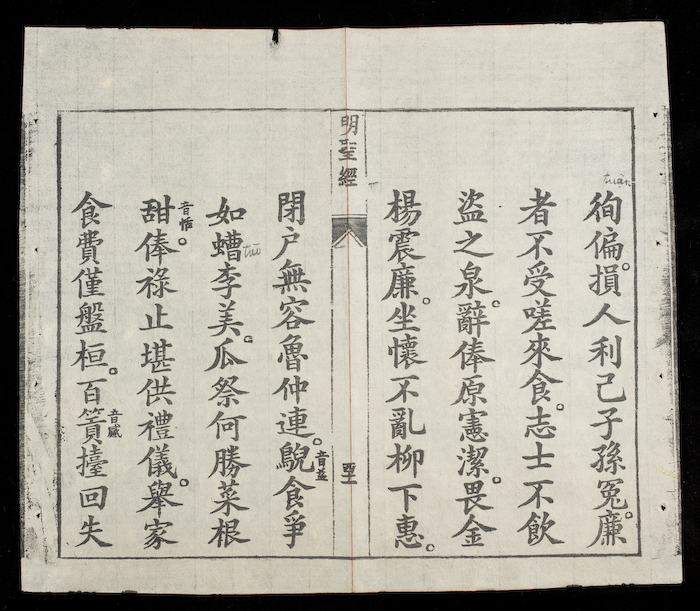 徇偏。損人利己子孫冤。廉
tuân
者不受嗟來食。志士不飲
盜之泉。辭俸原憲潔。畏金
楊震廉。坐懷不亂柳下惠。
明聖經
閉户無容魯仲連。鶃音益食爭
如螬李美。瓜祭何勝菜根
甜音恬。俸祿止堪供禮儀。舉家
食費僅盤桓。百簣擡回失